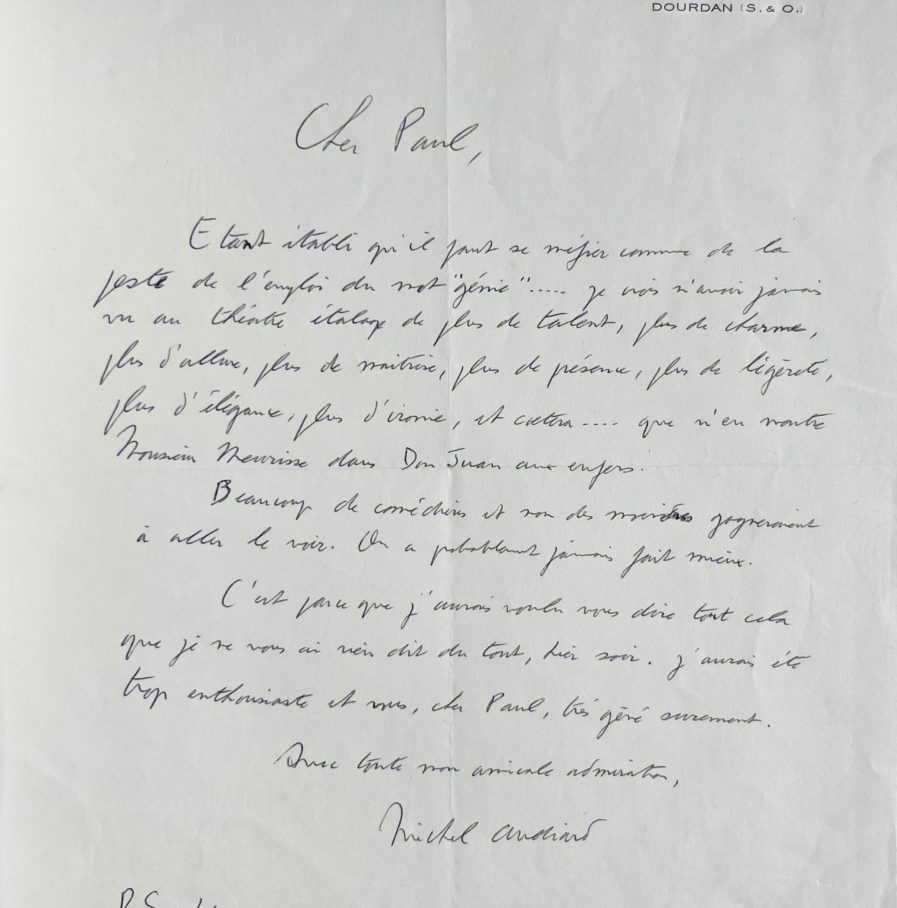 DOURDAN (S. & O.)
Cher Paul,
Etant établi qu'il faut se méfier comme de la
peste de l'emploi du mot "génie"..... je crois n'avoir jamais
vu au théâtre étalage de plus de talent, plus de charme,
plus d'allure, plus de maitrise, plus de présence, plus de légèreté,
plus d'élégance, plus d'ironie, et caetera.... que n'en montre
Monsieur Meurisse dans Don Juan aux enfers.
Beaucoup de comédiens et non des moindres gagneraient
à aller le voir. On a probablement jamais fait mieux.
C'est parce que j'aurais voulu vous dire tout cela
que je ne vous ai rien dit du tout, hier soir. J'aurais été
trop enthousiaste et vous, cher Paul, très gêné surement.
Avec toute mon amicale admiration,
Michel Audiard
P.S.